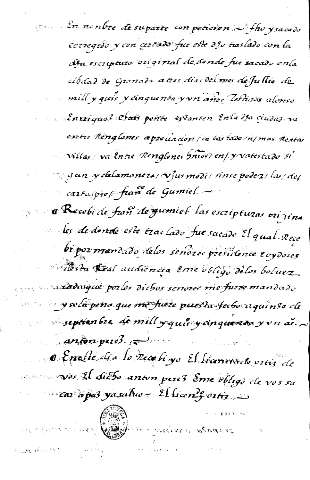 En nombre de su parte con peticion fho y sacado
corregido y concertado fue este dho traslado con la
dha escriptura original de donde fue sacado en la
cibdad de Granada a tres dias del mes de Jullio de
mill y quis y cinquenta y un años Testigos alonso
Enrriquez estantes en la dha ciudad va
entre Renglones
villas va Entre Renglones y va testado si
gun
fran.co de Gumiel
Recebi de fran.co de gumiel las escripturas origina
les de donde este traslado fue sacado El qual Rece
bi por mandado de los señores presidente e oydores
desta Real audiencia E me obligo de los bolver
cada que por los dichos señores me fuere mandado
y so la pena que me fuere puesta fecho a quinze de
septiembre de mill y quis y cinquenta y un as
anton perez
En este dia lo Recebi yo El licenciado ortiz de
vos El dicho anton perez E me obligo de vos sa
car a paz y a salvo El licen.do ortiz